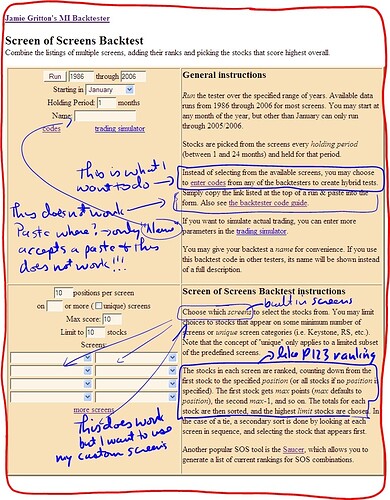 Jamie Gritton's MI Backtester
Screen of Screens Backtest
Combine the listings of multiple screens, adding their ranks and picking the stocks that score highest overall.
Run 1986 through 2006
Starting in January
Holding Period: 1 months
Name:
codes trading simulator
General instructions
Run the tester over the specified range of years. Available data
runs from 1986 through 2006 for most screens. You may start at
any month of the year, but other than January can only run
through 2005/2006.
Stocks are picked from the screens every holding period
(between 1 and 24 months) and held for that period.
Instead of selecting from the available screens, you may choose
to enter codes from any of the backtesters to create hybrid tests.
Simply copy the link listed at the top of a run & paste into the
form. Also see the backtester code guide.
If you want to simulate actual trading, you can enter more
parameters in the trading simulator.
You may give your backtest a name for convenience. If you use
this backtest code in other testers, its name will be shown instead
of a full description.
This is what I
want to do
This does not work
Paste where? → only "Name"
accepts a paste & this
does not work!!!
10 positions per screen
on or more ( unique) screens
Max score: 10
Limit to 10 stocks
Screens:
more screens
This does work
but I want to use
my custom screens
Screen of Screens Backtest instructions
built in screens
Choose which screens to select the stocks from. You may limit
choices to stocks that appear on some minimum number of
screens or unique screen categories (i.e. Keystone, RS, etc.).
Note that the concept of "unique" only applies to a limited subset
of the predefined screens.
like P123 ranking
The stocks in each screen are ranked, counting down from the
first stock to the specified position (or all stocks if no position is
specified). The first stock gets max points (max defaults to
position), the second max-1, and so on. The totals for each
stock are then sorted, and the highest limit stocks are chosen. In
the case of a tie, a secondary sort is done by looking at each
screen in sequence, and selecting the stock that appears first.
Another popular SOS tool is the Saucer, which allows you to
generate a list of current rankings for SOS combinations.